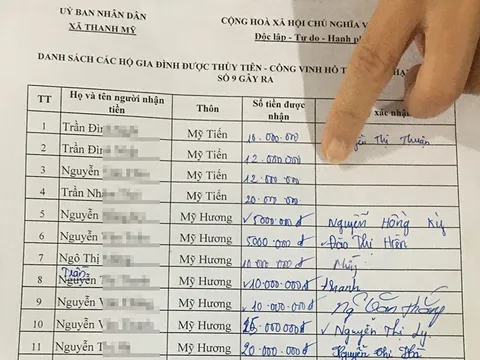 UỶ BAN NHÂN DÂN
XÃ THANH MỸ
CỘNG HOÀ XÃ HỘI CHỦ NGHĨA V
Độc lập - Tự do - Hạnh ph
DANH SÁCH CÁC HỘ GIA ĐÌNH ĐƯỢC THỦY TIÊN - CÔNG VINH HỖ T
SỐ 9 GÂY RA
TT Họ và tên người nhận tiền Thôn Số tiền được nhận xác nhận
1 Trần Đìn Mỹ Tiến 10.000.000 Thị Thuận
2 Trần Đìn Mỹ Tiến 12.000.000
3 Nguyễn Mỹ Tiến 12.000.000
4 Trần Nh Mỹ Tiến 20.000.000
5 Nguyễn Mỹ Hương 5000.000đ Nguyễn Hồng Kỳ
6 Nguyễn Mỹ Hương 5000.000đ Đào Thị Hiền
7 Ngô Thị Mỹ Hương 10.000.000đ
8 Trần Nguyễn Mỹ Hương 10.000.000đ thanh
9 Nguyễn V Mỹ Hương 10.000.000đ
10 Nguyễn V Mỹ Hương 000.000đ Nguyễn Thị Ly
11 Nguyễn T Mỹ Hương 20.000.000đ Nguyễn Thị